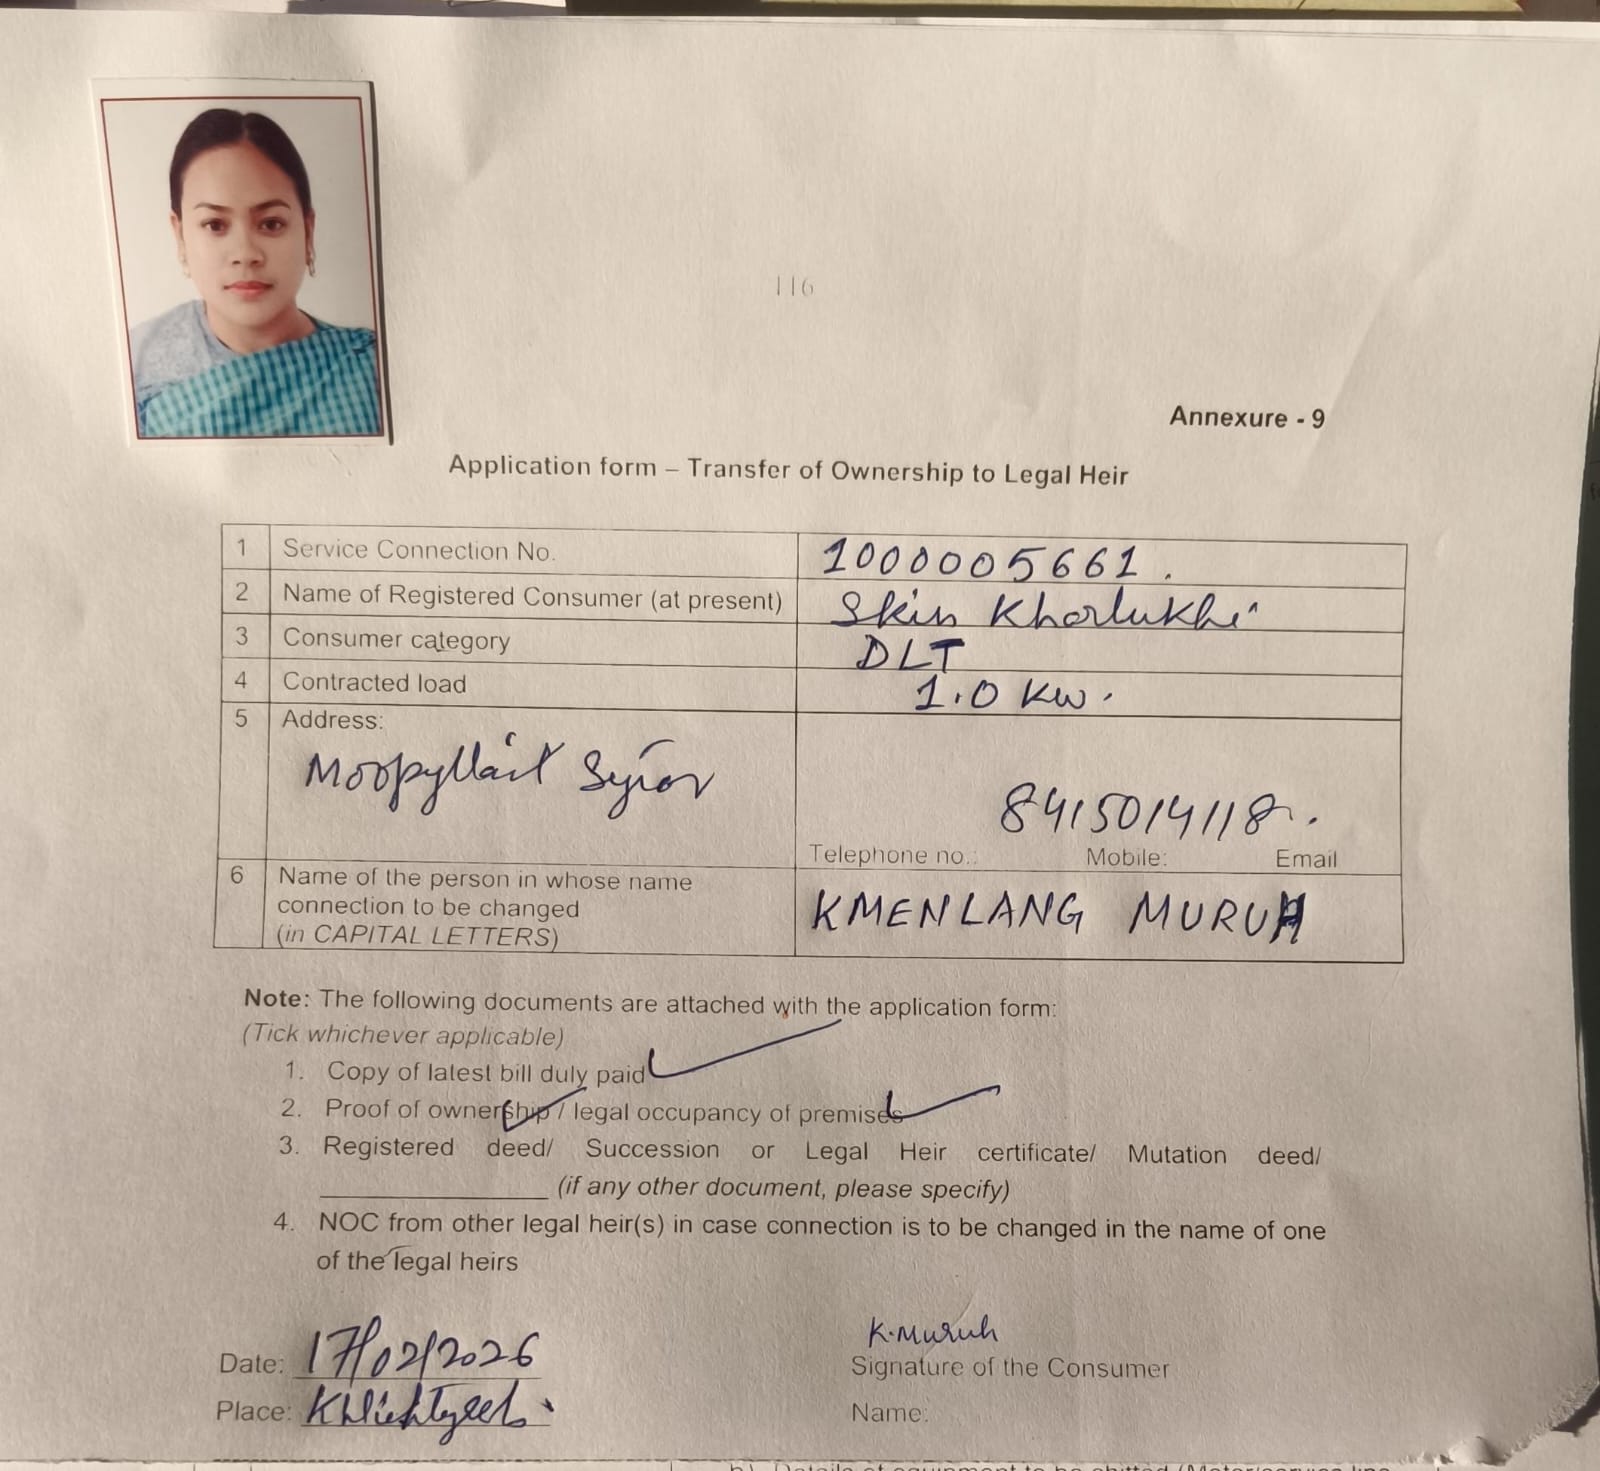 116
Annexure - 9
Application form – Transfer of Ownership to Legal Heir
1 Service Connection No. 1000005661.
2 Name of Registered Consumer (at present) Skin Kharlukhi
3 Consumer category DLT
4 Contracted load 1.0 KW.
5 Address:
Moopyllait Syror
8415014118.
Telephone no.: Mobile: Email
6 Name of the person in whose name connection to be changed (in CAPITAL LETTERS) KMENLANG MURUH
Note: The following documents are attached with the application form:
(Tick whichever applicable)
1. Copy of latest bill duly paid
2. Proof of ownership / legal occupancy of premises
3. Registered deed/ Succession or Legal Heir certificate/ Mutation deed/
(if any other document, please specify)
4. NOC from other legal heir(s) in case connection is to be changed in the name of one
of the legal heirs
Date: 17/02/2026
Place:
K.Muruh
Signature of the Consumer
Name: